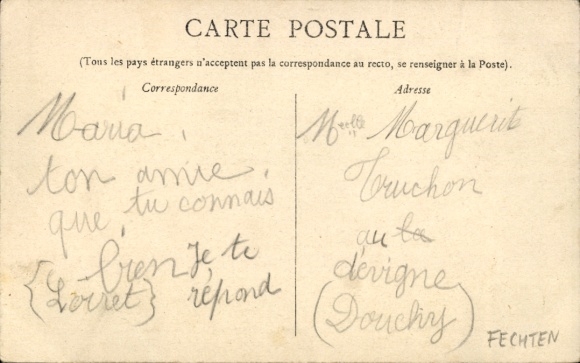 CARTE POSTALE
(Tous les pays étrangers n'acceptent pas la correspondance au recto, se renseigner à la Poste).
Correspondance
Maria,
ton amie,
que, tu connais
bien Je te
{Loiret} répond
Adresse
Melle Marguerite
Truchon
au la
dévigne
(Douchy)
FECHTEN